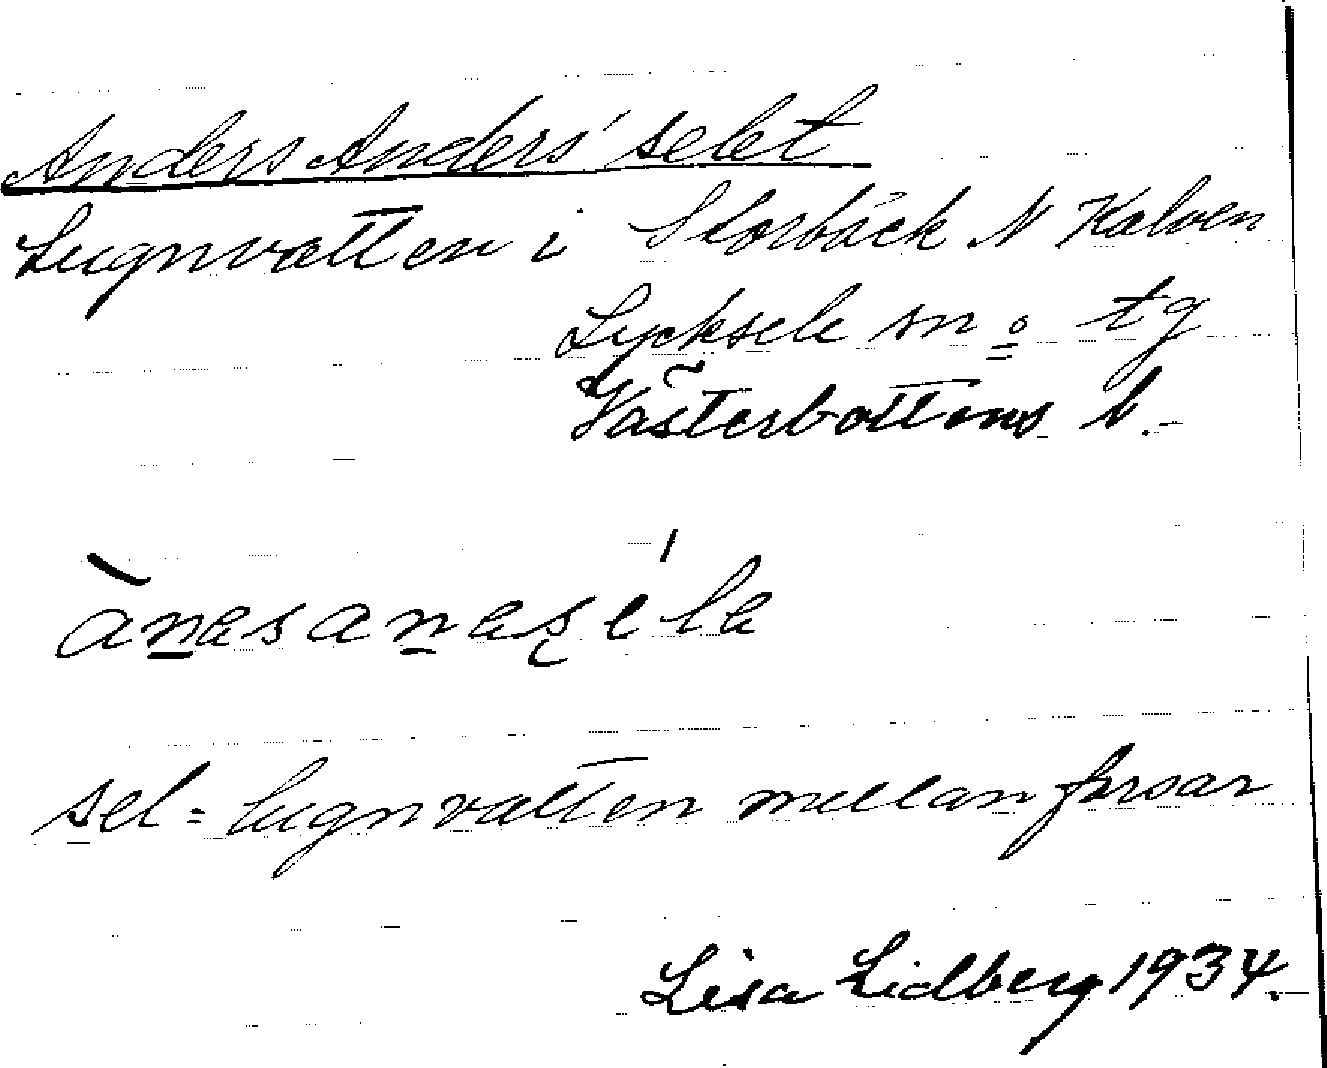 Anders Anders' selet
Lugnvatten i Storbäck N Kalven
Lycksele sn o tg
Västerbottens l.
ànasanasela
sel = lugnvatten mellan forsar
Lisa Lidberg 1934.